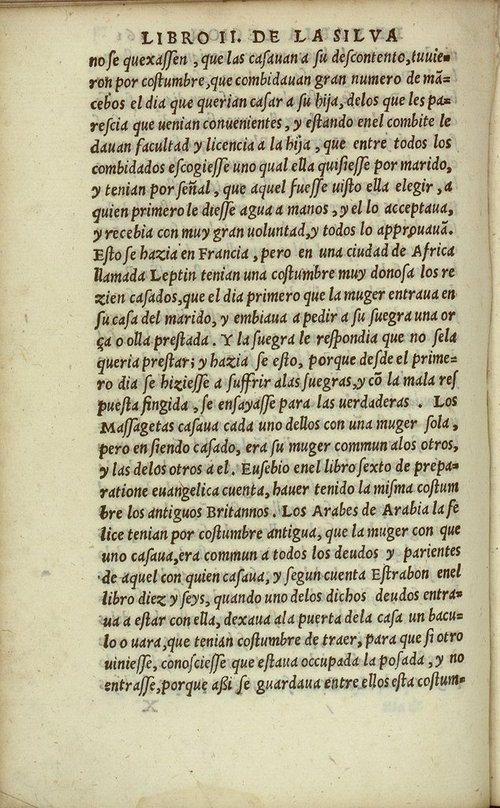 LIBRO II. DE LA SILVA
no se quexaſſen , que las caſauan a ſu deſcontento, tuuie-
ron por coſtumbre, que combidauan gran numero de mā-
cebos el dia que querian caſar a ſu hija, delos que les pa-
reſcia que uenian conuenientes , y eſtando enel combite le
dauan facultad y licencia a la hija , que entre todos los
combidados eſcogieſſe uno qual ella quiſieſſe por marido,
y tenian por ſeñal , que aquel fueſſe uiſto ella elegir , a
quien primero le dieſſe agua a manos , y el lo acceptaua,
y recebia con muy gran uoluntad, y todos lo approuauā.
Eſto ſe hazia en Francia , pero en una ciudad de Africa
llamada Leptin tenian una coſtumbre muy donoſa los re
zien caſados, que el dia primero que la muger entraua en
ſu caſa del marido, y embiaua a pedir a ſu ſuegra una or
ça o olla preſtada . Y la ſuegra le reſpondia que no ſela
queria preſtar; y hazia ſe eſto, porque desde el prime-
ro dia ſe hizieſſe a ſuffrir alas ſuegras, y cō la mala reſ
pueſta fingida , ſe enſayaſſe para las uerdaderas . Los
Maſſagetas caſaua cada uno dellos con una muger ſola ,
pero en ſiendo caſado, era ſu muger commun alos otros,
y las delos otros a el . Euſebio enel libro ſexto de prepa-
ratione euangelica cuenta, hauer tenido la miſma coſtum
bre los antiguos Britannos. Los Arabes de Arabia la fe
lice tenian por coſtumbre antigua, que la muger con que
uno caſaua, era commun a todos los deudos y parientes
de aquel con quien caſaua, y ſegun cuenta Eſtrabon enel
libro diez y ſeys, quando uno delos dichos deudos entra-
ua a eſtar con ella, dexaua ala puerta dela caſa un bacu-
lo o uara, que tenian coſtumbre de traer, para que ſi otro
uinieſſe, conoſcieſſe que eſtaua occupada la poſada , y no
entraſſe, porque aßi ſe guardaua entre ellos eſta coſtum-